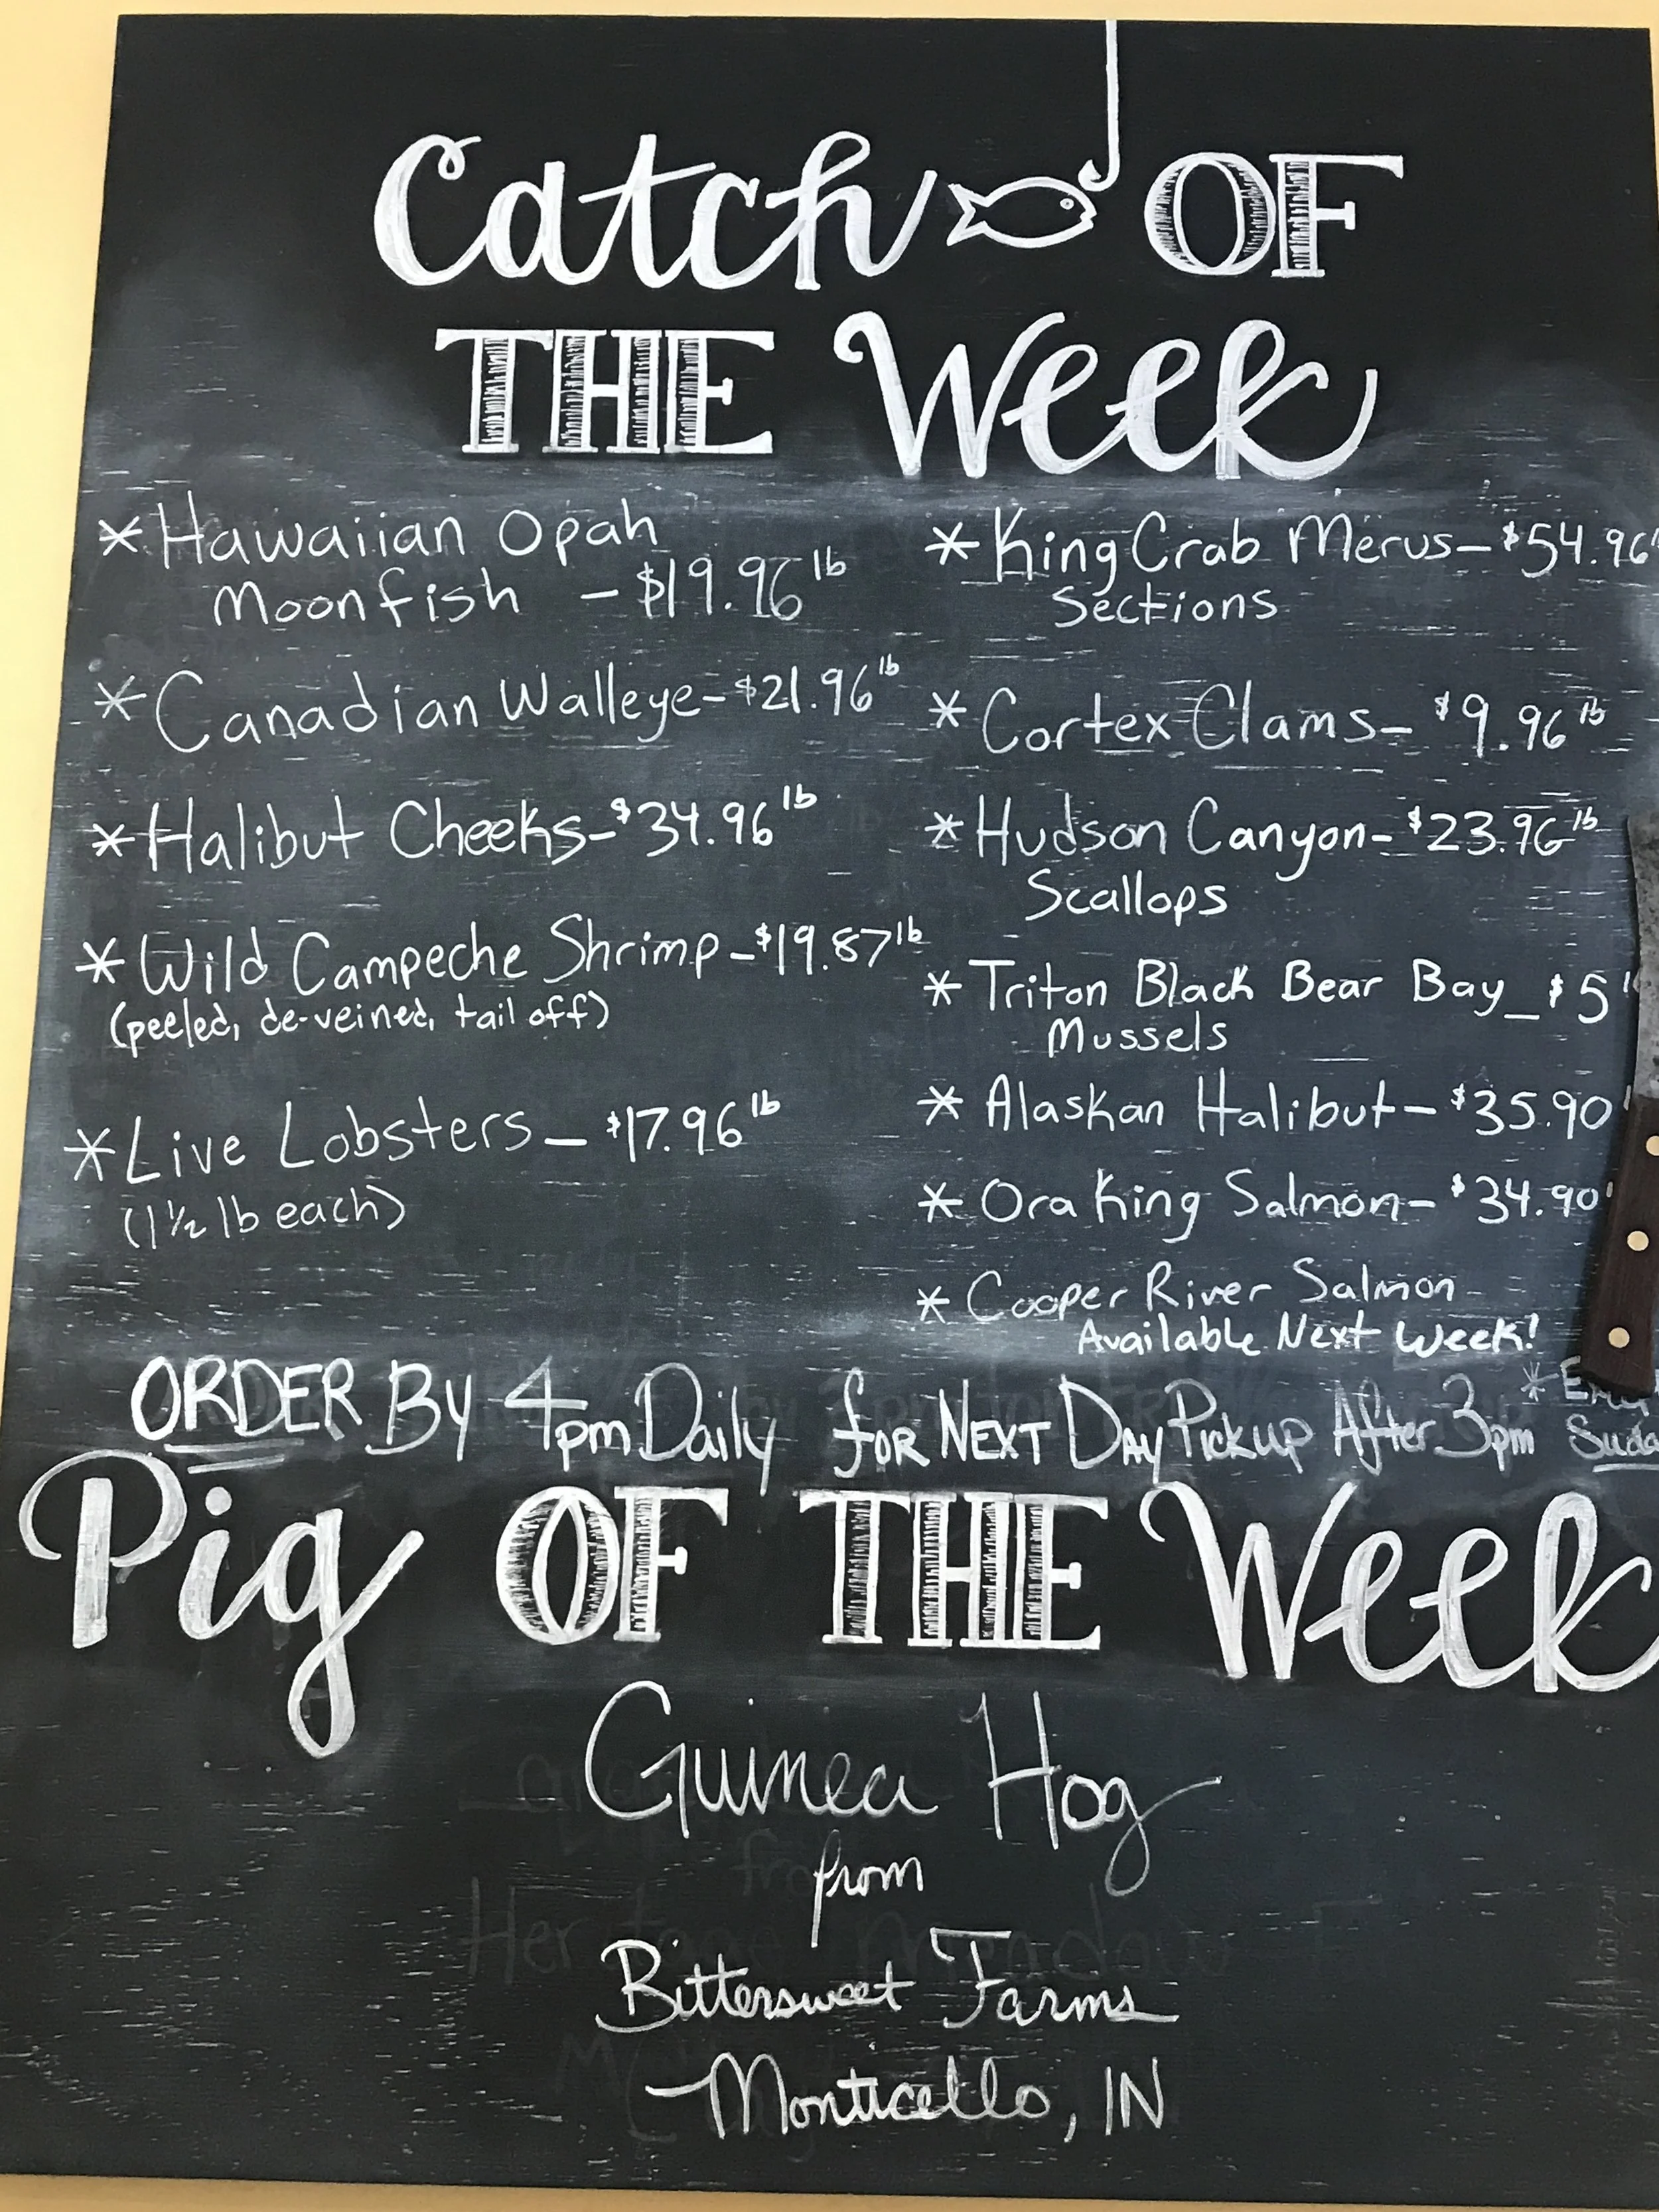 Catch OF
THE Week
*Hawaiian Opah
Moonfish - $19.96 lb
*Canadian Walleye-$21.96 lb
*Halibut Cheeks-$34.96 lb
*Wild Campeche Shrimp-$19.87 lb
(peeled, de-veined, tail off)
*Live Lobsters - $17.96 lb
(1 ½ lb each)
*King Crab Merus-$54.96
Sections
*Cortex Clams- $9.96 lb
*Hudson Canyon-$23.96 lb
Scallops
*Triton Black Bear Bay_$5
Mussels
*Alaskan Halibut-$35.90
*Ora King Salmon-$34.90
*Cooper River Salmon
Available Next Week!
ORDER By 4pm Daily for NEXT DAy Pickup After 3pm
Pig OF THE Week
Guinea Hog
from
Bittersweet Farms
Monticello, IN